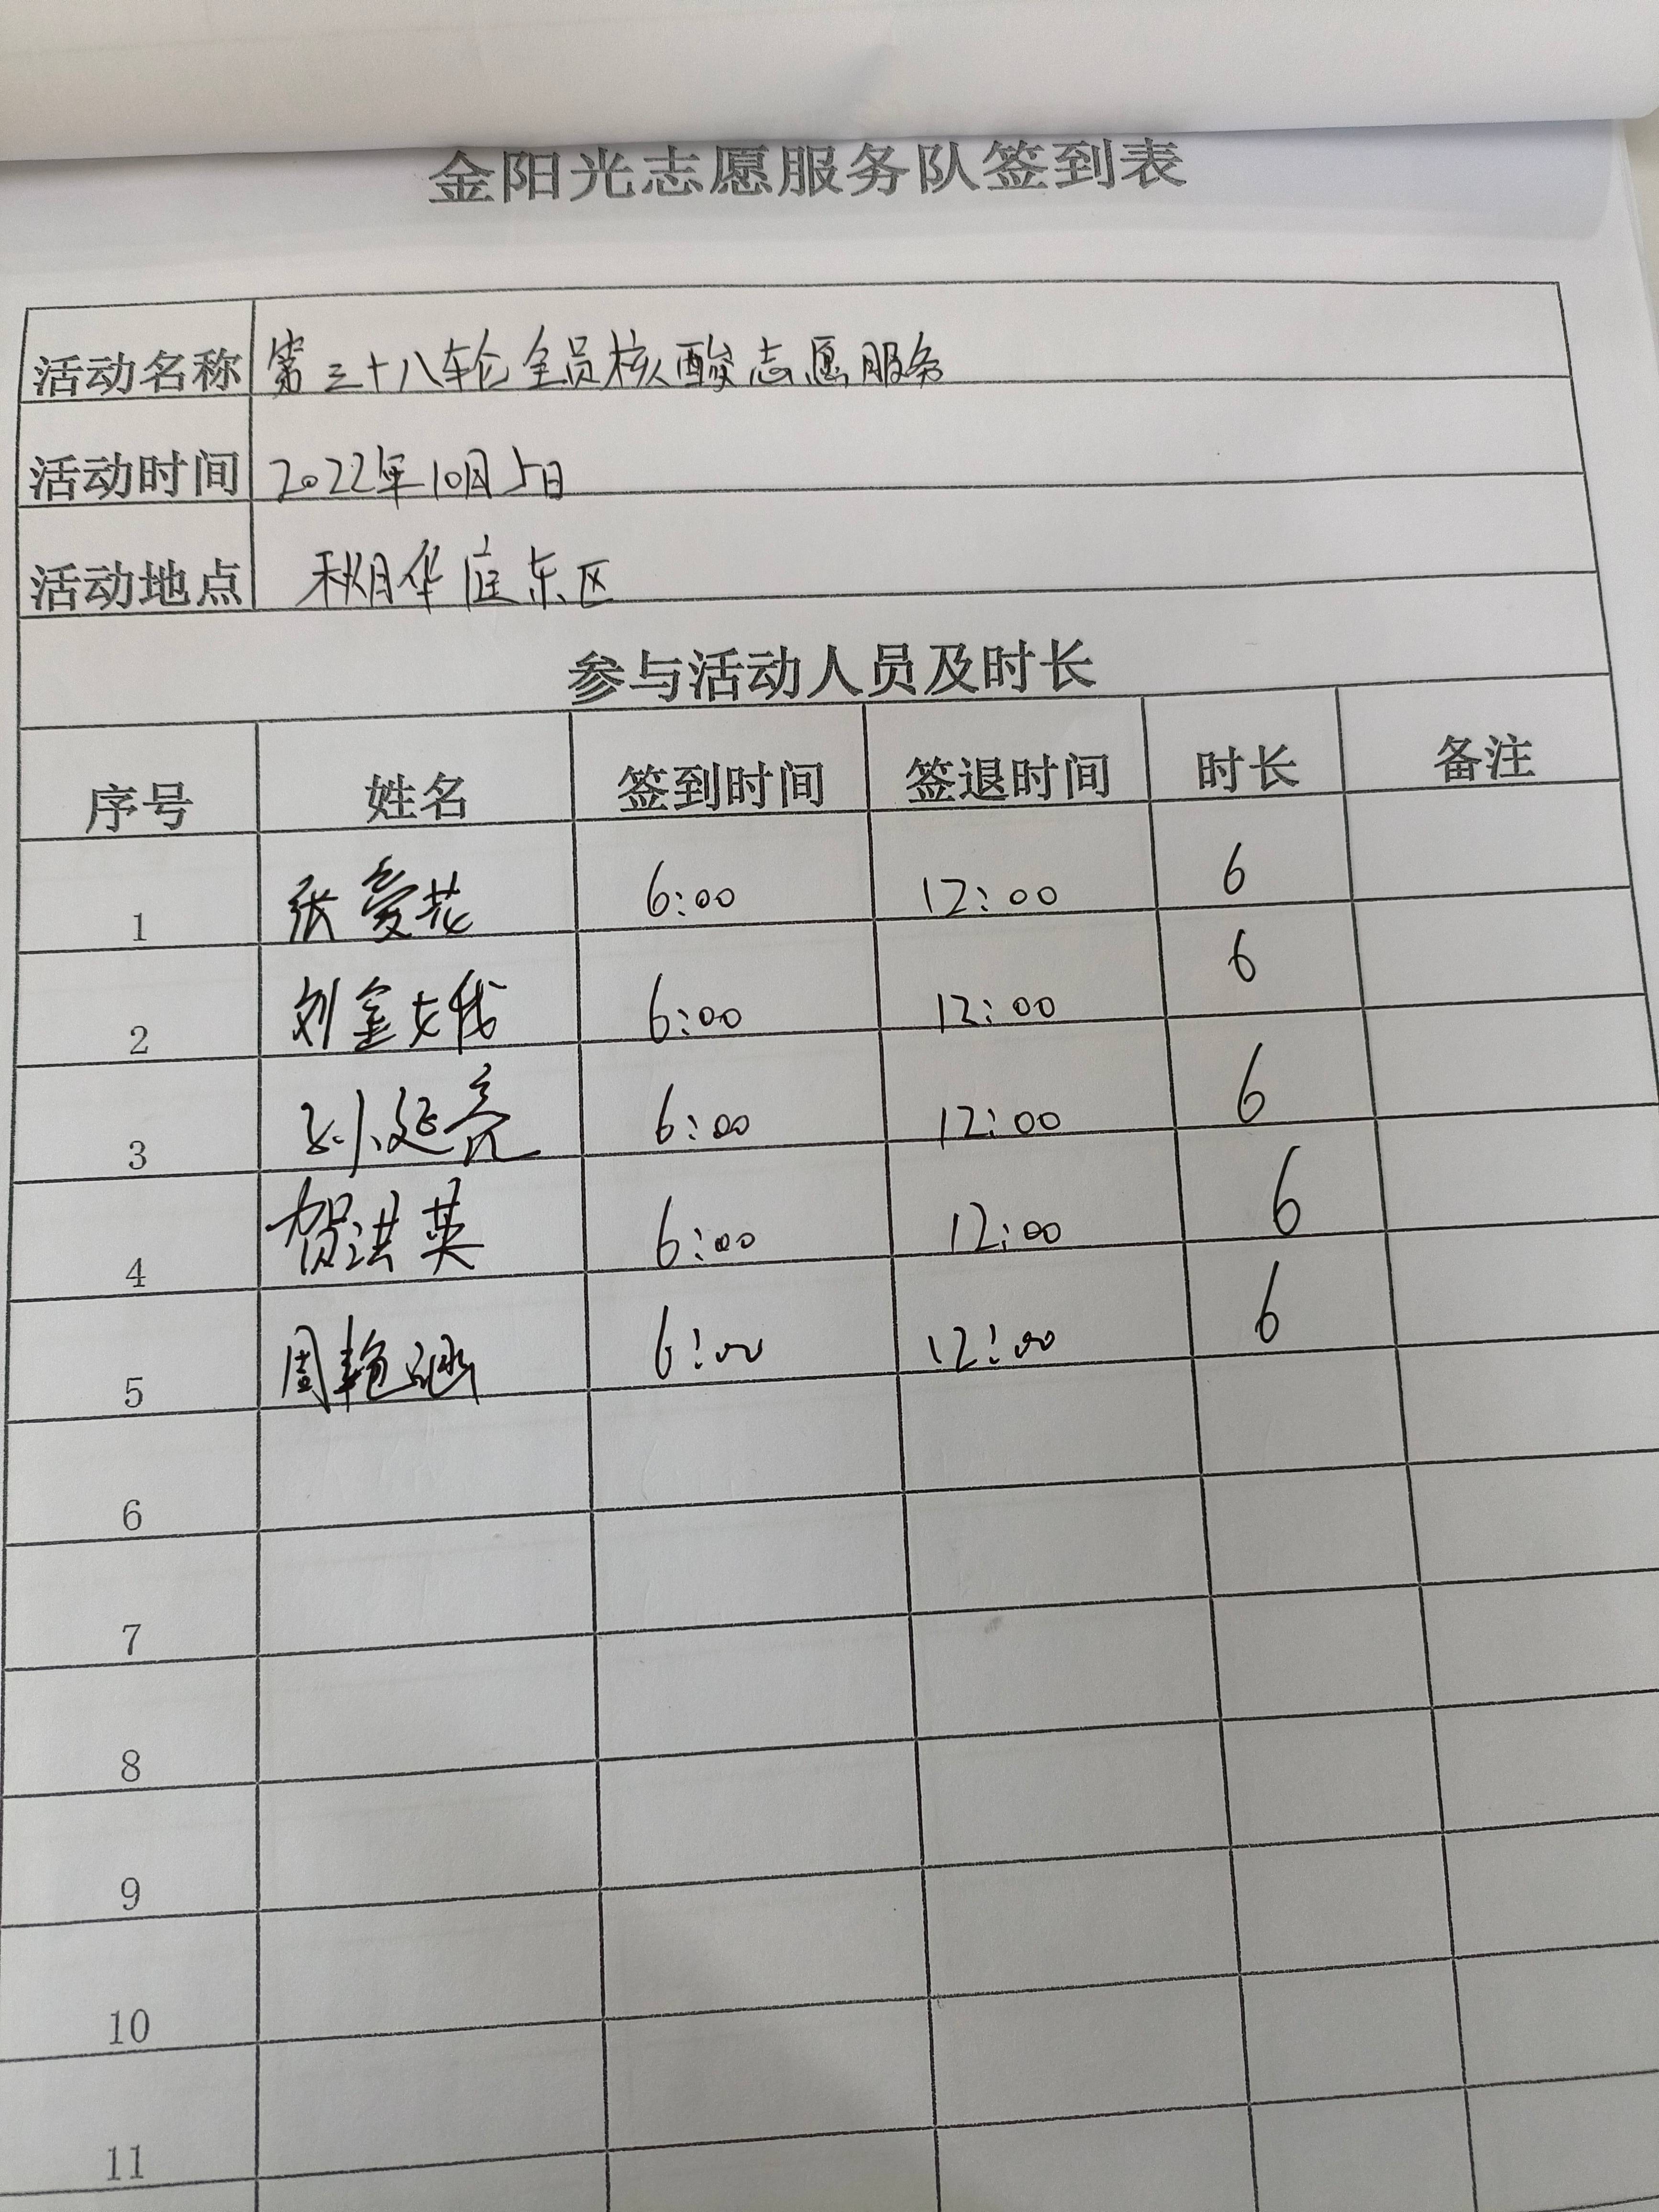 金阳光志愿服务队签到表
活动名称 第三十八轮全员核酸志愿服务
活动时间 2022年10月5日
活动地点 秋月华庭东区
参与活动人员及时长
序号 姓名 签到时间 签退时间 时长 备注
1 张爱花 6:00 12:00 6
2 刘金娥 6:00 12:00 6
3 孙延亮 6:00 12:00 6
4 贺洪英 6:00 12:00 6
5 周艳涵 6:00 12:00 6
6
7
8
9
10
11